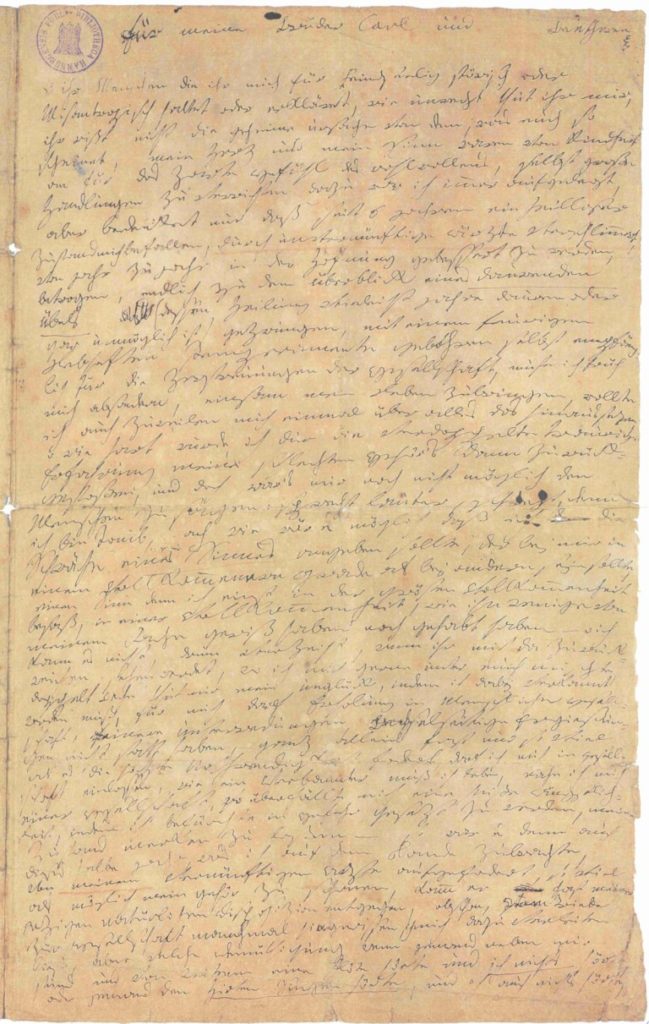 für meine Brüder Carl und
o ihr Menschen die ihr mich für Feindseelig störisch oder
Misantropisch haltet oder erkläret, wie unrecht thut ihr mir,
ihr wißt nicht die geheime urßache von dem, was euch so
scheinet, mein Herz und mein Sinn waren von Kindheit
an für das Zarte gefühl des wohlwollens, selbst große
Handlungen zu verrichten dazu war ich immer aufgelegt,
aber bedenket nur daß seit 6 jahren ein heilloser
Zustand mich befallen, durch unvernünftige ärzte verschlimmert,
von jahr zu jahr in der Hofnung gebessert zu werden,
betrogen, endlich zu dem überblick eines daurenden
Übels (dessen Heilung vieleicht jahre dauren oder
gar unmöglich ist) gezwungen, mit einem feurigen
Lebhaften Temperamente gebohren selbst empfäng-
lich für die Zerstreuungen der gesellschaft, muste ich früh
mich absondern, einsam mein Leben zubringen, wollte
ich auch zuweilen mich einmal über alles das hinaussezen,
o wie hart wurde ich dur die verdoppelte traurige
Erfahrung meines schlechten gehör's dann zurück-
gestoßen, und doch war's mir noch nicht möglich den
Menschen zu sagen: sprecht lauter, schreyt, denn
ich bin Taub, ach wie wär es möglich daß ich die
Schwäche eines Sinnes angeben sollte, der bey mir in
einem Vollkommenern grade als bey andern seyn sollte,
einen Sinn denn ich einst in der grösten Vollkommenheit
besaß, in einer Vollkommenheit, wie ihn wenige von
meinem Fache gewiß haben noch gehabt haben – o ich
kann es nicht, drum verzeiht, wenn ihr mich da zurück-
weichen sehen werdet, wo ich mich gerne unter euch mischte,
doppelt Wehe thut mir mein unglück, indem ich dabey verkannt
werden muß, für mich darf Erholung in Menschlicher gesell-
schaft, feinere unterredungen, Wechselseitige Ergießun-
gen nicht statt haben, ganz allein fast nur so viel
als es die höchste Nothwendigkeit fodert, darf ich mich in gesell-
schaft einlassen, wie ein Verbannter muß ich leben, nahe ich mich
einer gesellschaft, so überfällt mich eine heiße ängstlich-
keit, indem ich befürchte in gefahr gesezt zu werden, meinen
Zustand merken zu laßen – so war es denn auch
dieses halbe jahr, was ich auf dem Lande zubrachte,
von meinem Vernünftigen Arzte aufgefodert, so viel
als möglich mein gehör zu schonen, kamm er fast meiner
jezigen natürlichen Disposizion entgegen, obschon, Vom Triebe
zur gesellschaft manchmal hingerissen, ich mich dazu verleiten
ließ, aber welche Demüthigung wenn jemand neben mir
stund und von weitem eine flöte hörte und ich nichts hörte,
oder jemand den Hirten Singen hörte, und ich auch nichts hörte,